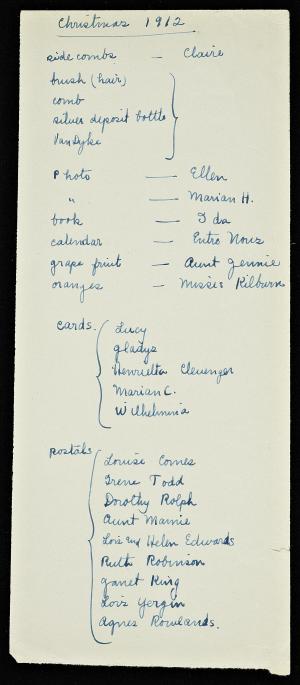 Christmas 1912
side combs — Claire
brush (hair)
comb
silver deposit bottle
VanDyke
Photo — Ellen
" — Marian H.
book — Ida
calendar — Entre Nous
grape fruit — Aunt Jennie
oranges — Misses Kilburn
cards. Lucy
Gladys
Henrietta Clevenger
Marian C.
Wilhelminia
postals Louise Comes
Irene Todd
Dorothy Rolph
Aunt Mamie
Lois and Helen Edwards
Ruth Robinson
Janet King
Lois Yergin
Agnes Rowlands.